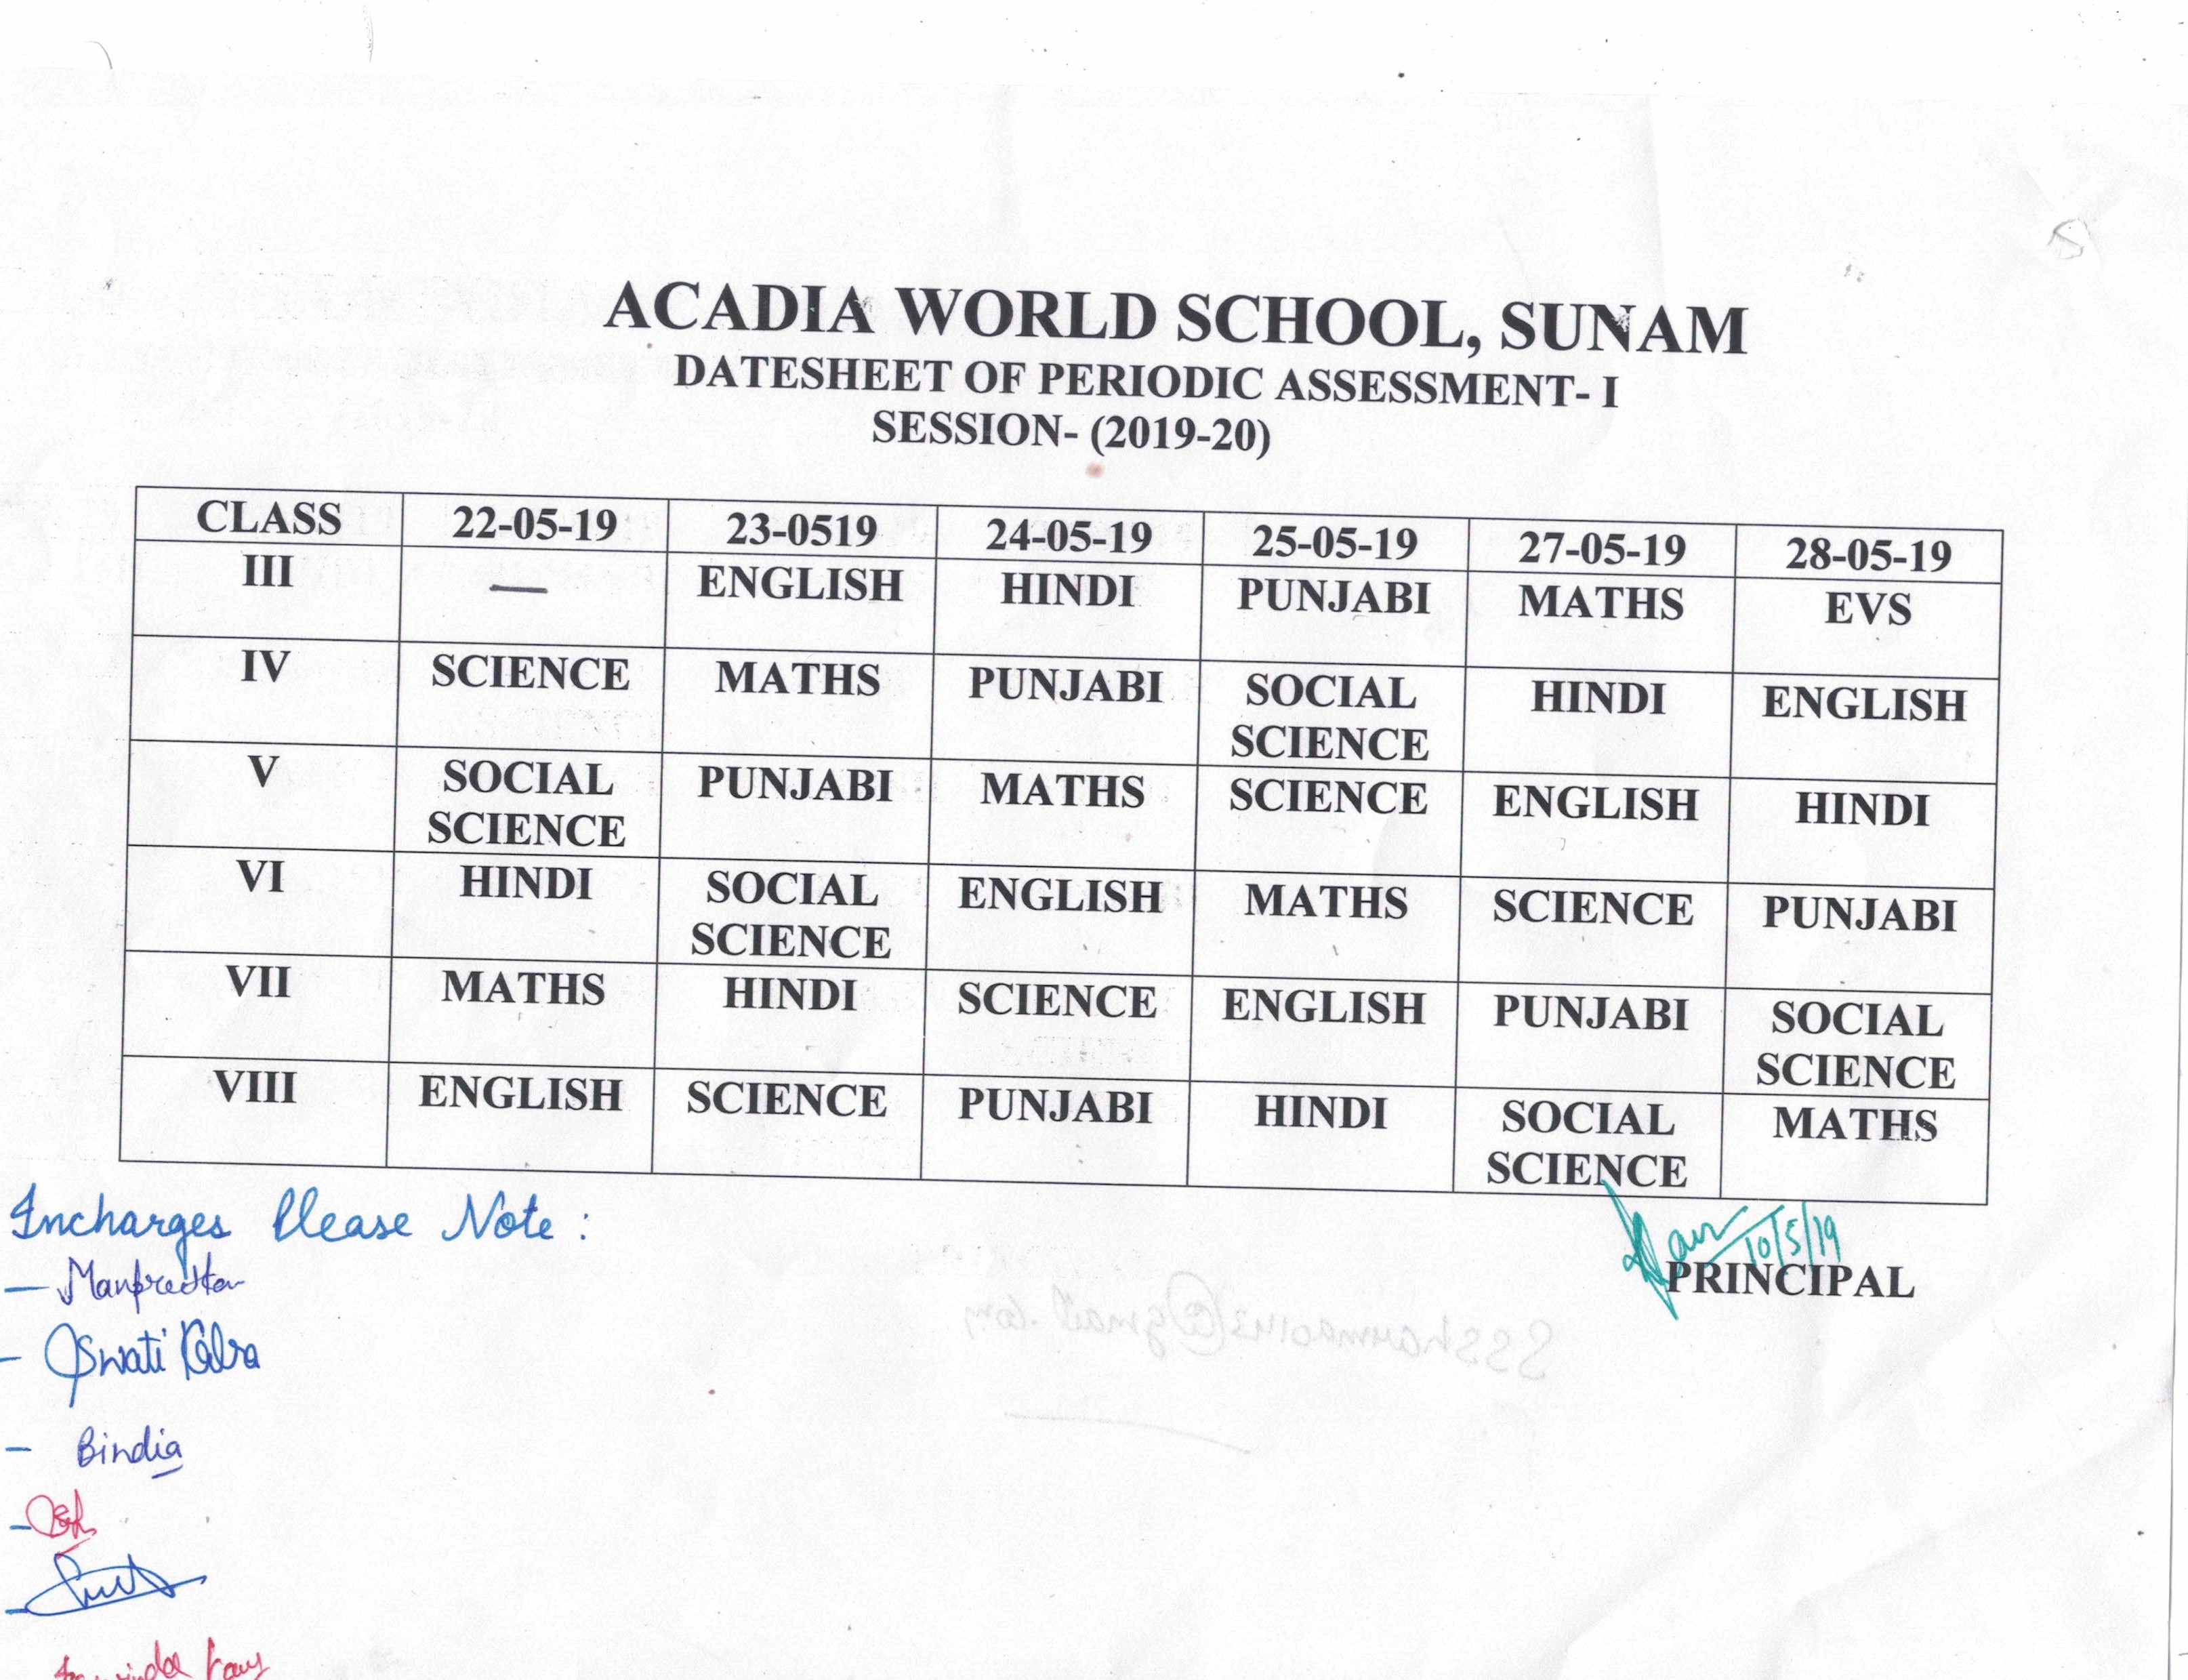 ACADIA WORLD SCHOOL, SUNAM
DATESHEET OF PERIODIC ASSESSMENT- I
SESSION- (2019-20)
CLASS 22-05-19 23-0519 24-05-19 25-05-19 27-05-19 28-05-19
III — ENGLISH HINDI PUNJABI MATHS EVS
IV SCIENCE MATHS PUNJABI SOCIAL SCIENCE HINDI ENGLISH
V SOCIAL SCIENCE PUNJABI MATHS SCIENCE ENGLISH HINDI
VI HINDI SOCIAL SCIENCE ENGLISH MATHS SCIENCE PUNJABI
VII MATHS HINDI SCIENCE ENGLISH PUNJABI SOCIAL SCIENCE
VIII ENGLISH SCIENCE PUNJABI HINDI SOCIAL SCIENCE MATHS
Incharges Please Note :
10/5/19
PRINCIPAL
- Swati Kalra
- Bindia